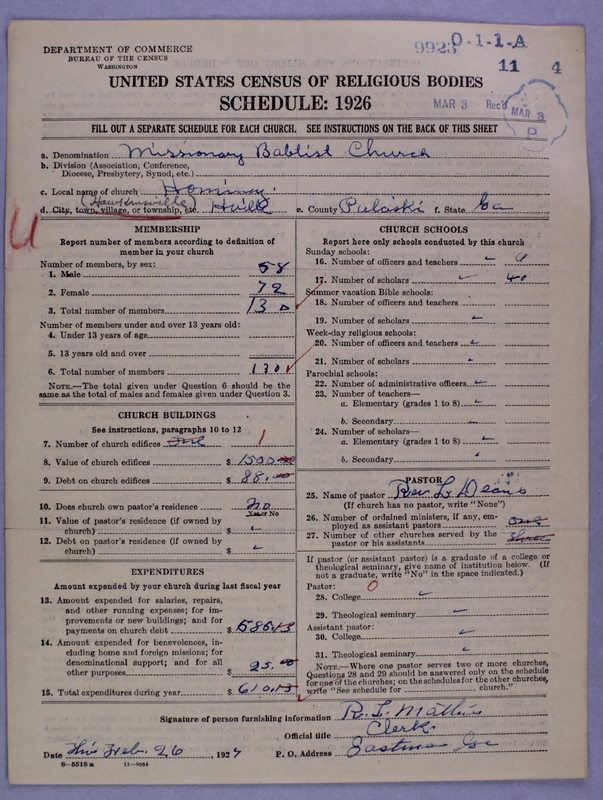 DEPARTMENT OF COMMERCE
BUREAU OF THE CENSUS
WASHINGTON
9923 O-1-1-A
11 4
UNITED STATES CENSUS OF RELIGIOUS BODIES
SCHEDULE: 1926
MAR 3 Rec'd
MAR 3
P
FILL OUT A SEPARATE SCHEDULE FOR EACH CHURCH. SEE INSTRUCTIONS ON THE BACK OF THIS SHEET
a. Denomination Missionary Babtist Church
b. Division (Association, Conference,
Diocese, Presbytery, Synod, etc.)
c. Local name of church
(Hawkinsville)
d. City, town, village, or township, etc. e. County Pulaski f. State Ga
MEMBERSHIP
Report number of members according to definition of
member in your church
Number of members, by sex:
1. Male 58
2. Female 72
3. Total number of members 130
Number of members under and over 13 years old:
4. Under 13 years of age
5. 13 years old and over
6. Total number of members 130
NOTE.—The total given under Question 6 should be the
same as the total of males and females given under Question 3.
CHURCH BUILDINGS
See instructions, paragraphs 10 to 12
7. Number of church edifices one 1
8. Value of church edifices $ 1500.00
9. Debt on church edifices $ 88.00
10. Does church own pastor's residence? no
Yes or No
11. Value of pastor's residence (if owned by
church) $
12. Debt on pastor's residence (if owned by
church) $
EXPENDITURES
Amount expended by your church during last fiscal year
13. Amount expended for salaries, repairs,
and other running expenses; for im-
provements or new buildings; and for
payments on church debt $ 585.13
14. Amount expended for benevolences, in-
cluding home and foreign missions; for
denominational support; and for all
other purposes $ 25.00
15. Total expenditures during year $ 610.13
CHURCH SCHOOLS
Report here only schools conducted by this church
Sunday schools:
16. Number of officers and teachers
17. Number of scholars 40
Summer vacation Bible schools:
18. Number of officers and teachers
19. Number of scholars
Week-day religious schools:
20. Number of officers and teachers
21. Number of scholars
Parochial schools:
22. Number of administrative officers
23. Number of teachers—
a. Elementary (grades 1 to 8)
b. Secondary
24. Number of scholars—
a. Elementary (grades 1 to 8)
b. Secondary
PASTOR
25. Name of pastor Rev. L. Deans
(If church has no pastor, write "None")
26. Number of ordained ministers, if any, em-
ployed as assistant pastors one
27. Number of other churches served by the
pastor or his assistants three
If pastor (or assistant pastor) is a graduate of a college or
theological seminary, give name of institution below. (If
not a graduate, write "No" in the space indicated.)
Pastor: 0
28. College
29. Theological seminary
Assistant pastor:
30. College
31. Theological seminary
NOTE.—Where one pastor serves two or more churches,
Questions 28 and 29 should be answered only on the schedule
for one of the churches; on the schedules for the other churches,
write "See schedule for church."
Signature of person furnishing information R. L. Mathis
Official title Clerk
Date This Feb. 26, 1927 P. O. Address Eastman Ga
8—5518a 11—9054